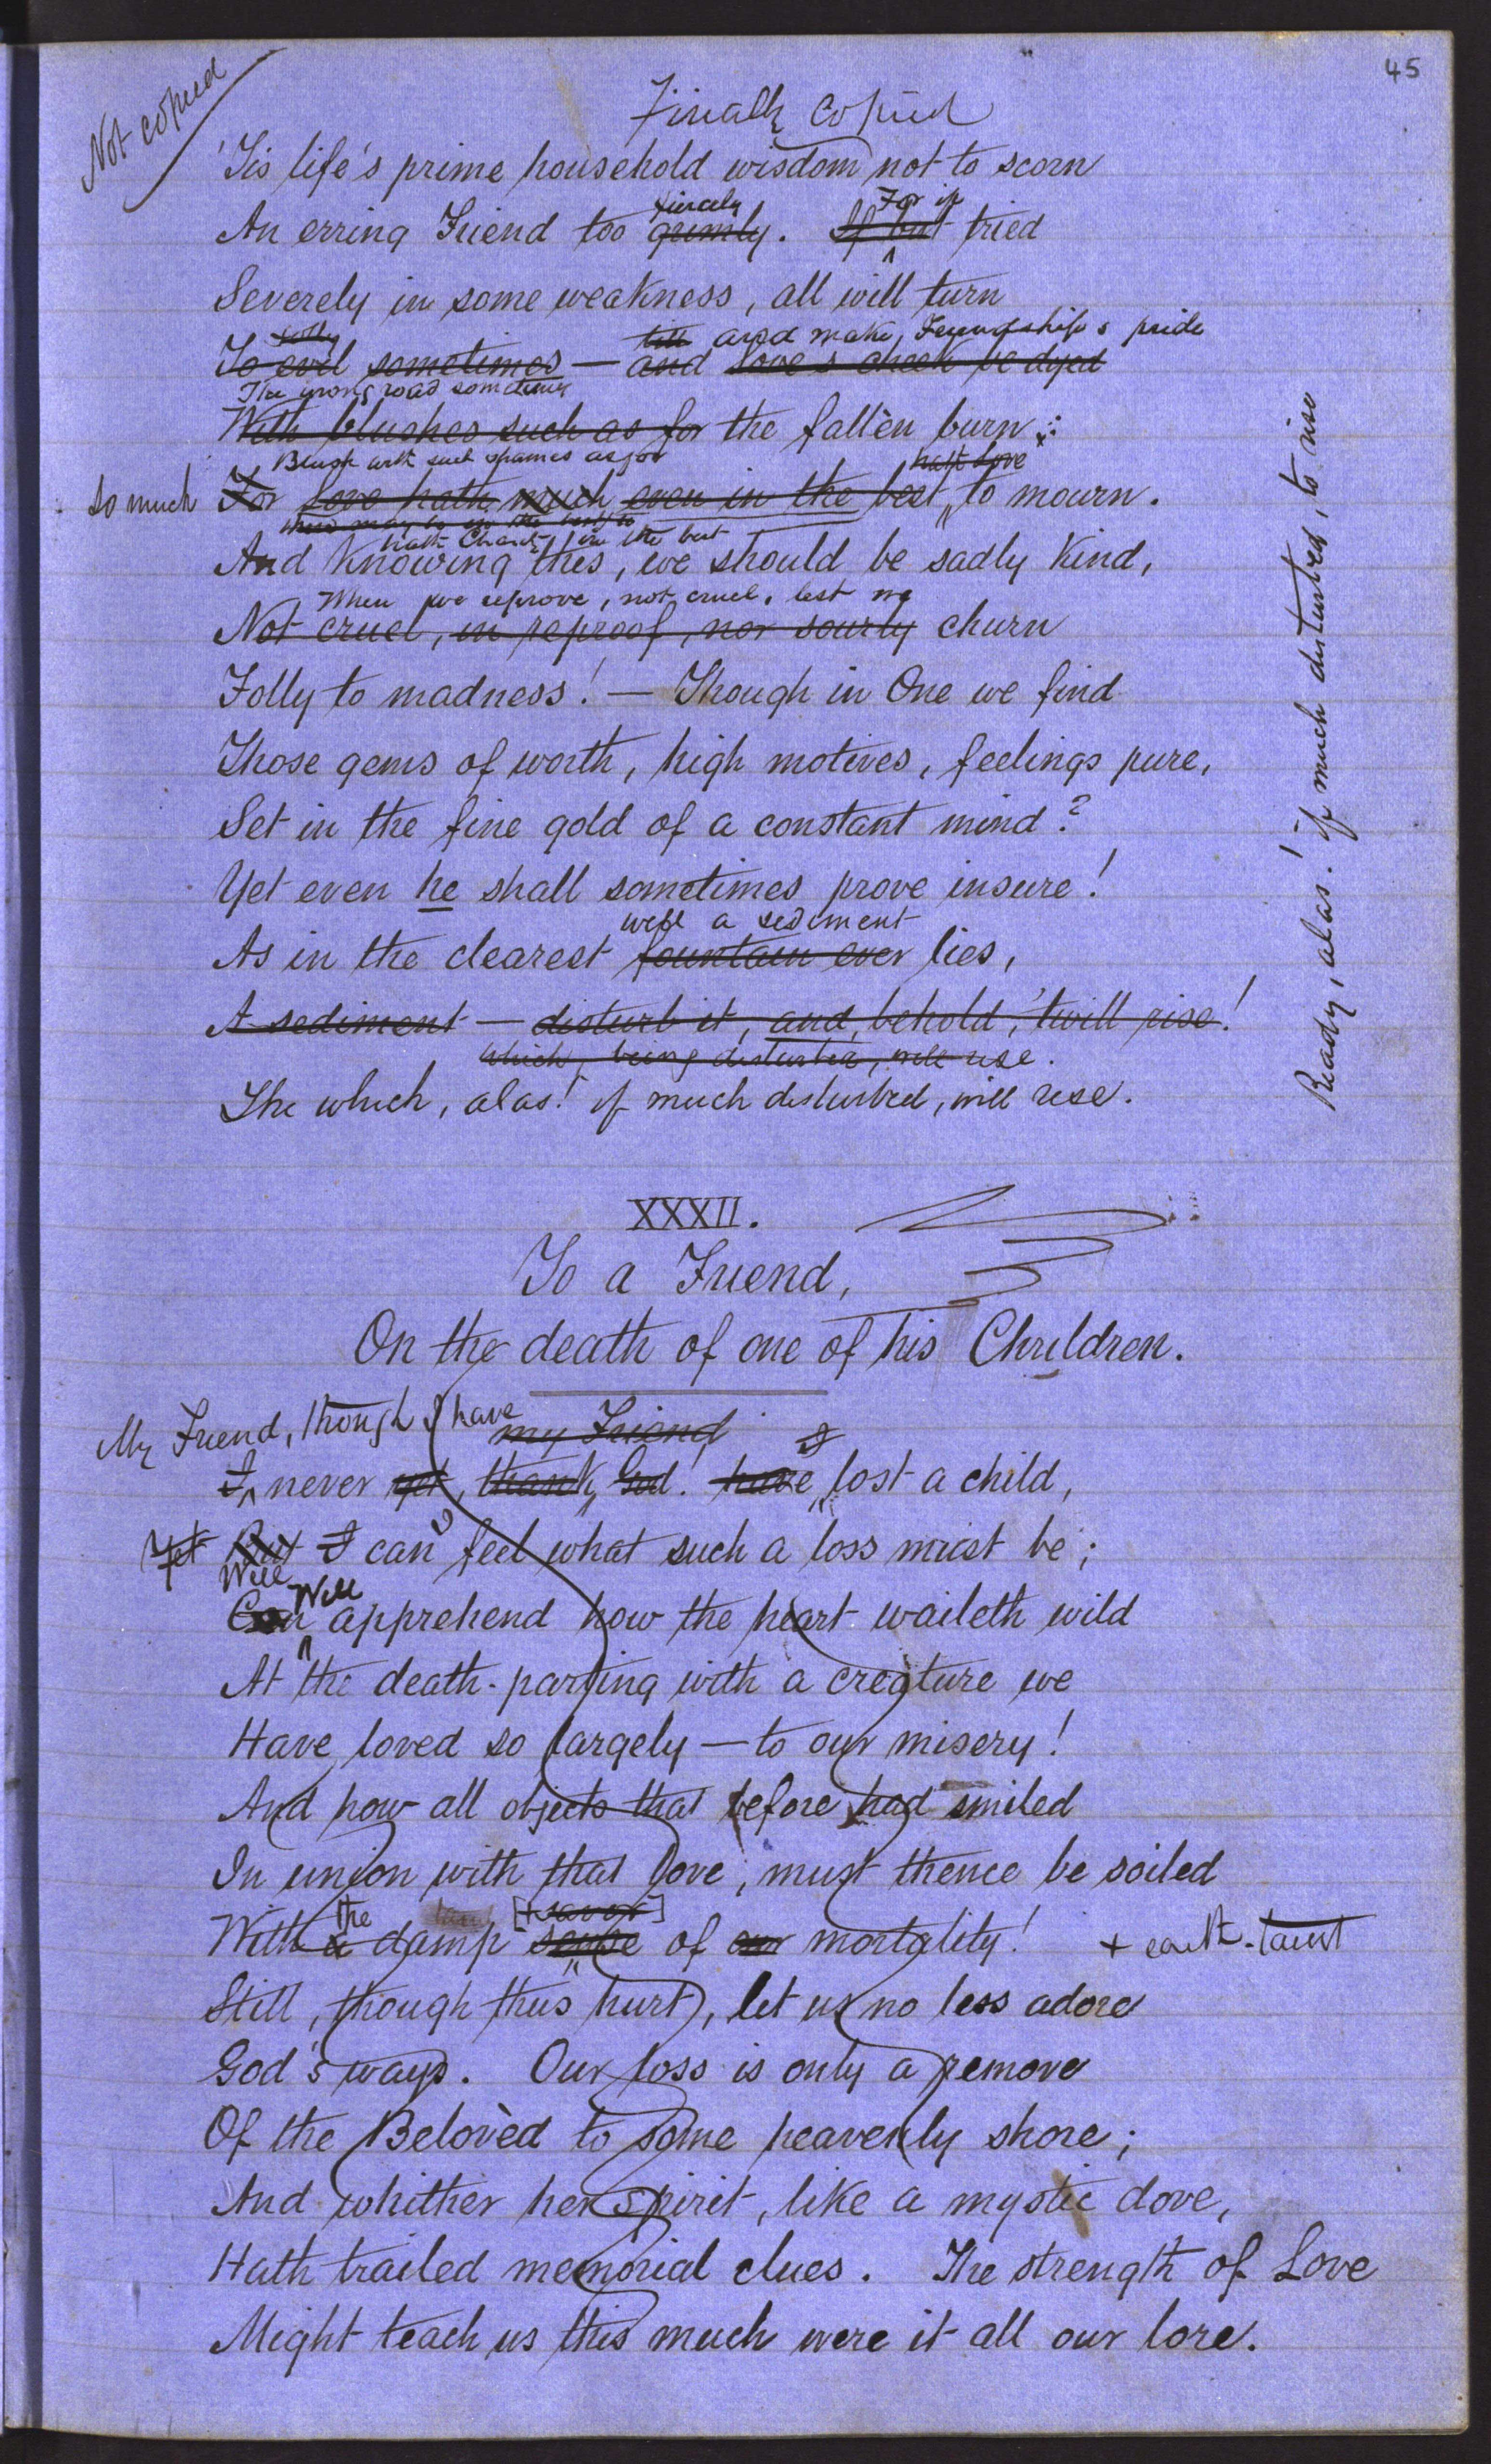 45
Not copied
Finally Copied
'Tis life's prime household wisdom not to scorn
fiercely For if
An erring Friend too grimly. If but tried
Severely in some weakness, all will turn
folly till and make, Friendship's pride
To evil sometimes — and Love's cheek be dyed
The wrong road sometimes
With blushes such as for the fallèn burn:
Blush with such shames as for hath Love
so much For Love hath much even in the best to mourn.
there may be in the best to
hath Charity in the best
And knowing this, we should be sadly kind,
When we reprove, not cruel, lest we
Not cruel, in reproof, nor sourly churn
Folly to madness! — Though in One we find
Those gems of worth, high motives, feelings pure,
Set in the fine gold of a constant mind?
Yet even he shall sometimes prove insure!
well a sediment
As in the clearest fountain ever lies,
A sediment — disturb it, and, behold, 'twill rise!
which, being disturbed, will rise.
The which, alas! if much disturbed, will rise.
Ready, alas! if much disturbed, to rise
XXXII.
To a Friend,
On the death of one of his Children.
My Friend, though I have my Friend I
I never yet, thank God! have lost a child,
Yet But I can feel what such a loss must be;
Well Well
Can apprehend how the heart waileth wild
At the death-parting with a creature we
Have loved so largely — to our misery!
And how all objects that before had smiled
In union with that love, must thence be soiled
the [+savor]
With a damp sense of our mortality! + earth-taint
Still, though thus hurt, let us no less adore
God's ways. Our loss is only a remove
Of the Belovèd to some heavenly shore;
And whither her spirit, like a mystic dove,
Hath trailed memorial clues. The strength of Love
Might teach us this much were it all our lore.